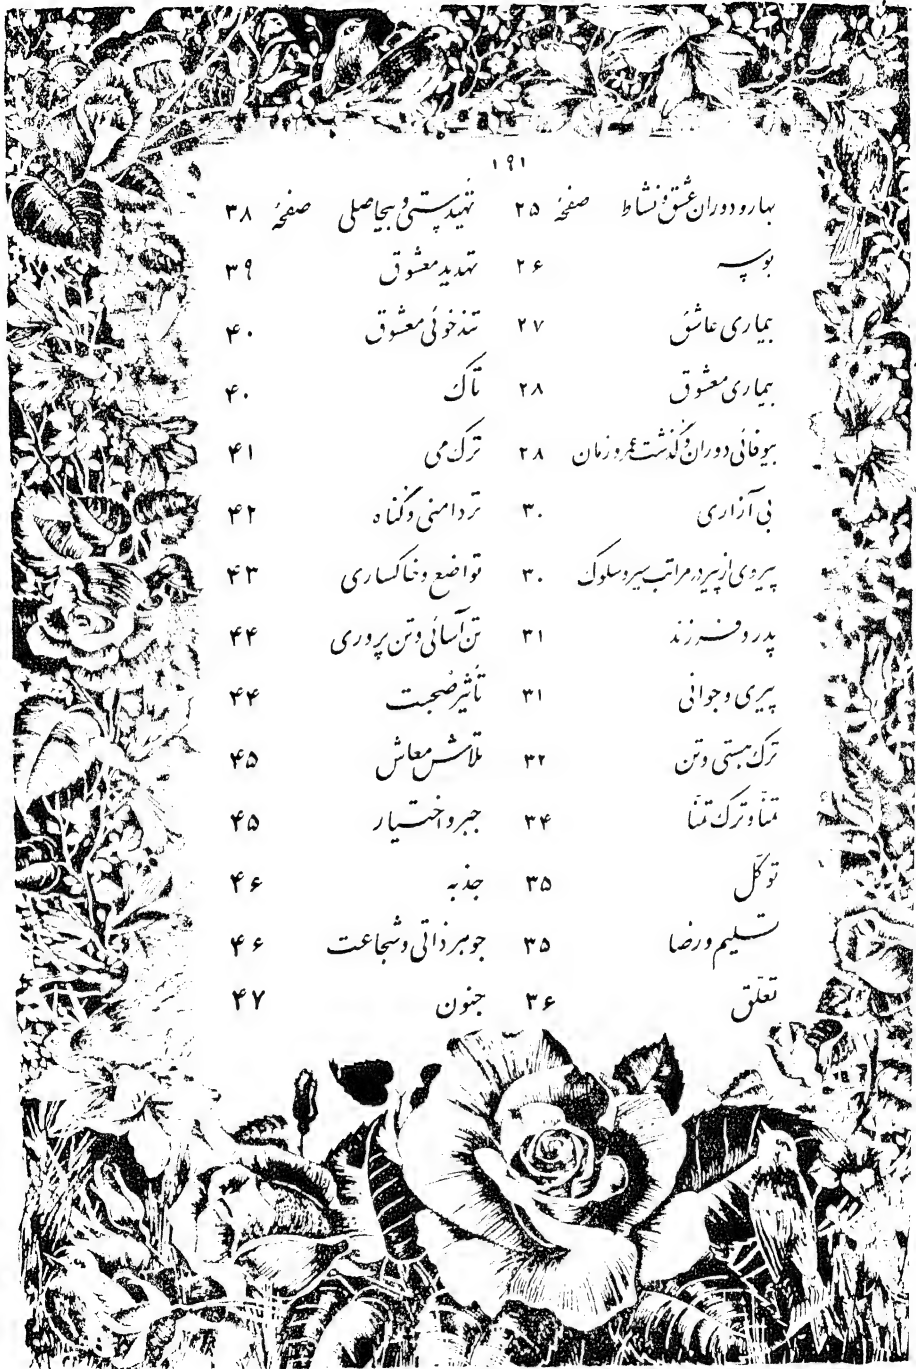 ۱۹۱
بهار و دوران عشق و نشاط صفحهٔ ۲۵
بوسه ۲۶
بیماری عاشق ۲۷
بیماری معشوق ۲۸
بیوفائی دوران و گذشت عمر و زمان ۲۸
بی آزاری ۳۰
پیروی از پیر در مراتب سیر و سلوک ۳۰
پدر و فرزند ۳۱
پیری و جوانی ۳۱
ترک هستی و تن ۳۲
تمنّا و ترک تمنّا ۳۴
توکّل ۳۵
تسلیم و رضا ۳۵
تعلّق ۳۶
تهیدستی و بیحاصلی صفحهٔ ۳۸
تهدید معشوق ۳۹
تندخوئی معشوق ۴۰
تاک ۴۰
ترک می ۴۱
تردامنی و گناه ۴۲
تواضع و خاکساری ۴۳
تن آسائی و تن پروری ۴۴
تأثیر صحبت ۴۴
تلاش معاش ۴۵
جبر و اختیار ۴۵
جذبه ۴۶
جوهر ذاتی و شجاعت ۴۶
جنون ۴۷